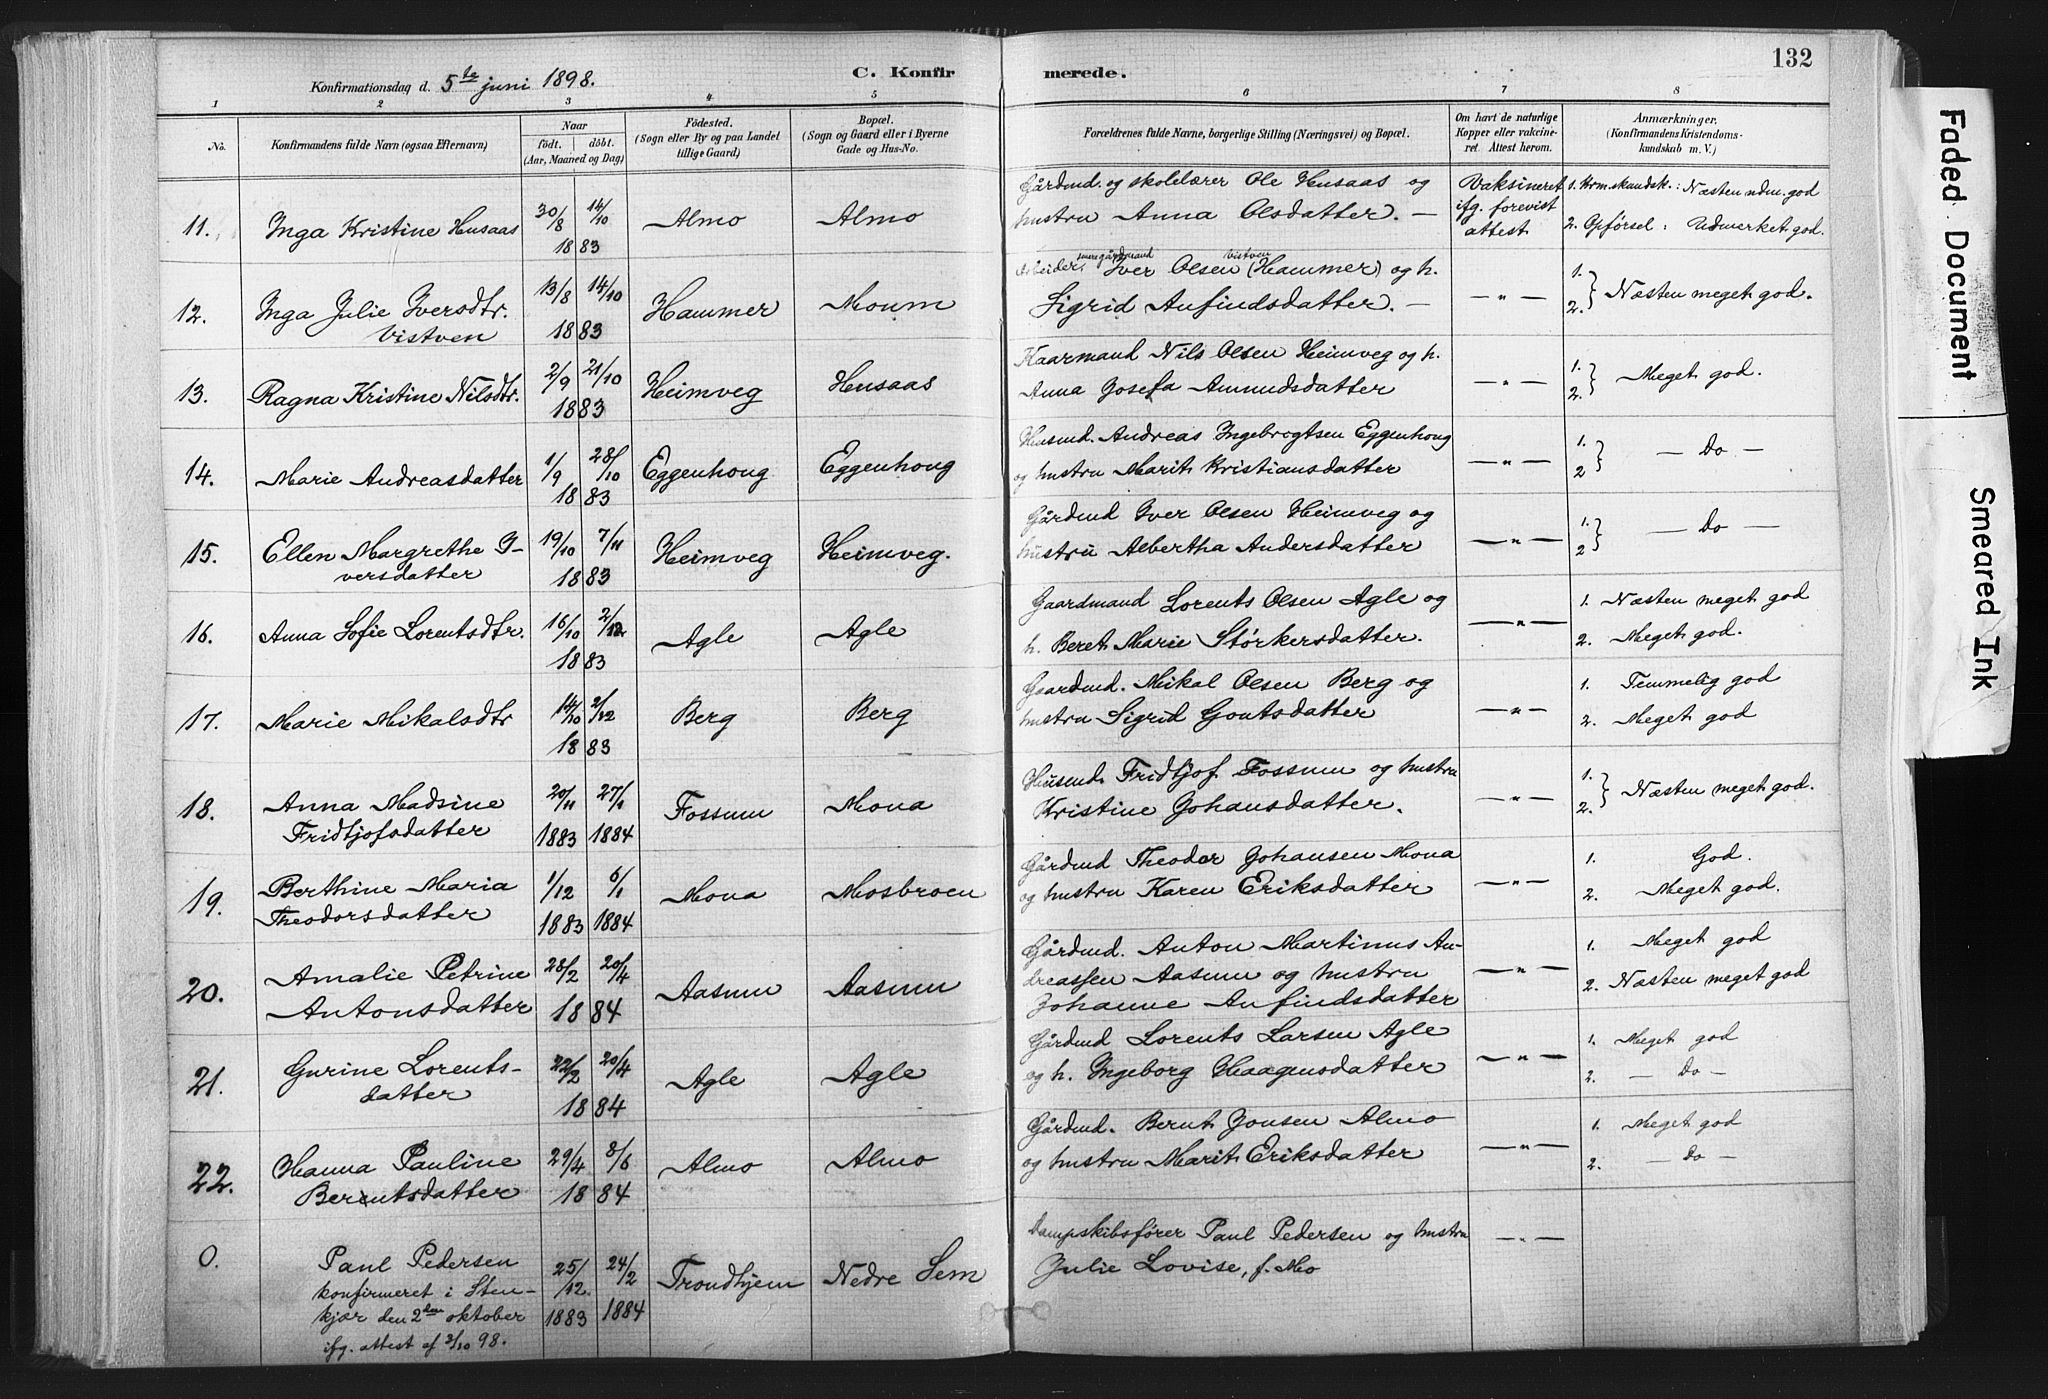 132
C. Konfir merede.
Konfirmationsdag d. 5te juni 1898.
1 2 3 4 5 6 7 8
No.
Konfirmandens fulde Navn (ogsaa Efternavn)
Naar
født. døbt.
(Aar, Maaned og Dag)
Fødested.
(Sogn eller By og paa Landet
tillige Gaard)
Bopæl.
(Sogn og Gaard eller i Byerne
Gade og Hus-No.
Forældrenes fulde Navne, borgerlige Stilling (Næringsvei) og Bopæl.
Om havt de naturlige
Kopper eller vaccine-
ret. Attest herom.
Anmærkninger.
(Konfirmandens Kristendoms-
kundskab m. V.)
11. Inga Kristine Husaas 30/8 14/10 1883 Almo Almo
Gårdmd. og skolelærer Ole Husaas og
hustru Anna Olsdatter. —
Vaksineret
ifg. forevist
attest
1. Krm.skundsk.: Næsten udm. god
2. Opførsel: Udmerket god.
12. Inga Julie Iversdtr. 13/8 14/10 1883 Hammer Moum
Vistven
Arbeider, senere gårdmand Iver Olsen (Hammer) Vistven og h.
Sigrid Anfindsdatter. —
— " —
1. 2. } Næsten meget god.
13. Ragna Kristine Nilsdtr. 2/9 21/10 1883 Heimveg Husaas
Kaarmand Nils Olsen Heimveg og h.
Anna Josefa Amundsdatter
— " —
1. 2. } Meget god.
14. Marie Andreasdatter 1/9 28/10 1883 Eggenhoug Eggenhoug
Husmd. Andreas Ingebrogtsen Eggenhoug
og hustru Marit Kristiansdatter
— " —
1. 2 } — Do —
15. Ellen Margrethe I- 19/10 7/11 1883 Heimveg Heimveg.
versdatter
Gårdmd Iver Olsen Heimveg og
hustru Albertha Andersdatter
— " —
1. 2 } — Do —
16. Anna Sofie Lorentsdtr. 16/10 2/12 1883 Agle Agle
Gaardmand Lorents Olsen Agle og
h. Beret Marie Størkersdatter.
— " —
1. Næsten meget god
2. Meget god.
17. Marie Mikalsdtr 14/10 2/12 1883 Berg Berg
Gaardmd. Mikal Olsen Berg og
hustru Sigrid Goutsdatter
— " —
1. Temmelig god
2. Meget god
18. Anna Madsine 20/11 27/1 Fossum Mona
Fridtjofsdatter 1883 1884
Husmd. Fridtjof Fossum og hustru
Kristine Johansdatter.
— " —
1. 2. } Næsten meget god.
19. Berthine Maria 1/12 6/1 Mona Mosbroen
Theodorsdatter 1883 1884
Gårdmd Theodor Johansen Mona
og hustru Karen Eriksdatter
— " —
1. God.
2. Meget god.
20. Amalie Petrine 28/2 20/4 Aasum Aasum
Antonsdatter 1884
Gårdmd. Anton Martinus An-
dreassen Aasum og hustru
Johanne Anfindsdatter
— " —
1. Meget god
2. Næsten meget god
21. Gurine Lorents- 22/2 20/4 Agle Agle
datter 1884
Gårdmd Lorents Larsen Agle
og h. Ingeborg Haagensdatter
— " —
1. Meget god
2. — Do —
22. Hanna Pauline 29/4 8/6 Almo Almo
Berentsdatter 1884
Gårdmd. Bernt Jonsen Almo
og hustru Marit Eriksdatter
— " —
1. Meget god
2. — Do —
0. Paul Pedersen 25/12 24/2 Trondhjem Nedre Sem
konfirmeret i Sten- 1883 1884
kjær den 2den oktober
ifg. attest af 3/10 98.
Dampskibsfører Paul Pedersen og hustru
Julie Lovise, f. Mo
— " —
Faded Document
Smeared Ink